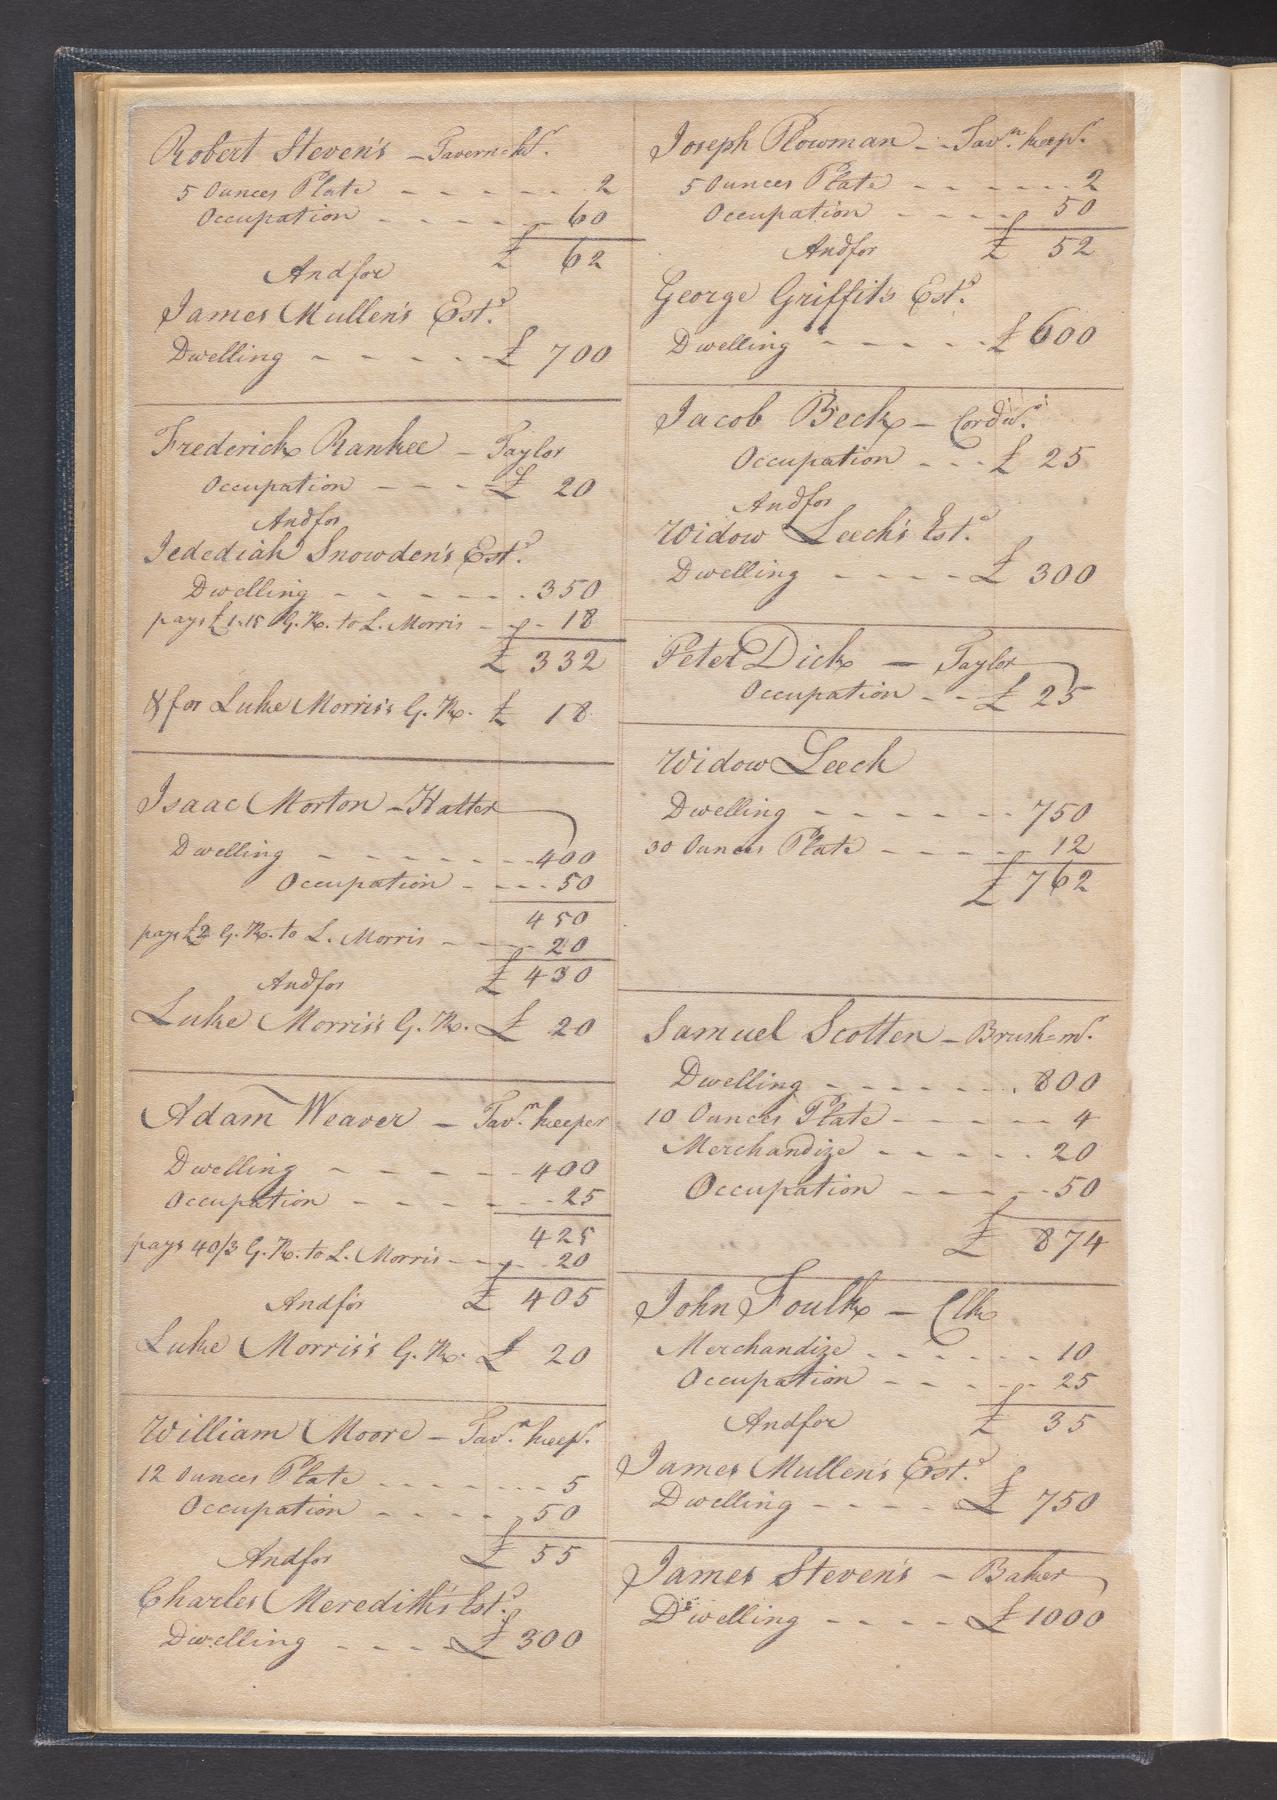 Robert Steven's – Tavern=kr.
5 Ounces Plate - - - - - - 2
Occupation - - - - - 60
£ 62
Andfor
James Mullen's Estd.
Dwelling - - - - - £ 700
Frederick Rankee – Taylor
Occupation - - - £ 20
Andfor
Jedediah Snowden's Estd.
Dwelling - - - - - - 350
pays £1.15 G. R. to L. Morris - - 18
£ 332
& for Luke Morris's G. R. £ 18
Isaac Morton – Hatter
Dwelling - - - - - - - 400
Occupation - - - - 50
450
pays £2 G. R. to L. Morris - - - 20
£ 430
Andfor
Luke Morris's G. R. £ 20
Adam Weaver – Tavn. keeper
Dwelling - - - - - - 400
Occupation - - - - - - 25
425
pays 40/3 G. R. to L. Morris - - - - 20
Andfor £ 405
Luke Morris's G. R. £ 20
William Moore – Tavn. keepr.
12 Ounces Plate - - - - - - - 5
Occupation - - - - - 50
£ 55
Andfor
Charles Meredith's Estd.
Dwelling - - - - £ 300
Joseph Plowman - - Tavn. keepr.
5 Ounces Plate - - - - - - - 2
Occupation - - - - 50
Andfor £ 52
George Griffit's Estd.
Dwelling - - - - - - £ 600
Jacob Beck – Cordwr.
Occupation - - - £ 25
Andfor
Widow Leech's Estd.
Dwelling - - - - - £ 300
Peter Dick — Taylor
Occupation - - - £ 25
Widow Leech
Dwelling - - - - - - - 750
30 Ounces Plate - - - - - 12
£ 762
Samuel Scotten – Brush=mr.
Dwelling - - - - - - - 800
10 Ounces Plate - - - - - - 4
Merchandize - - - - - 20
Occupation - - - - - 50
£ 874
John Foulk – Clk
Merchandize - - - - - - 10
Occupation - - - - - 25
Andfor £ 35
James Mullen's Estd.
Dwelling - - - - - £ 750
James Steven's – Baker
Dwelling - - - - £ 1000